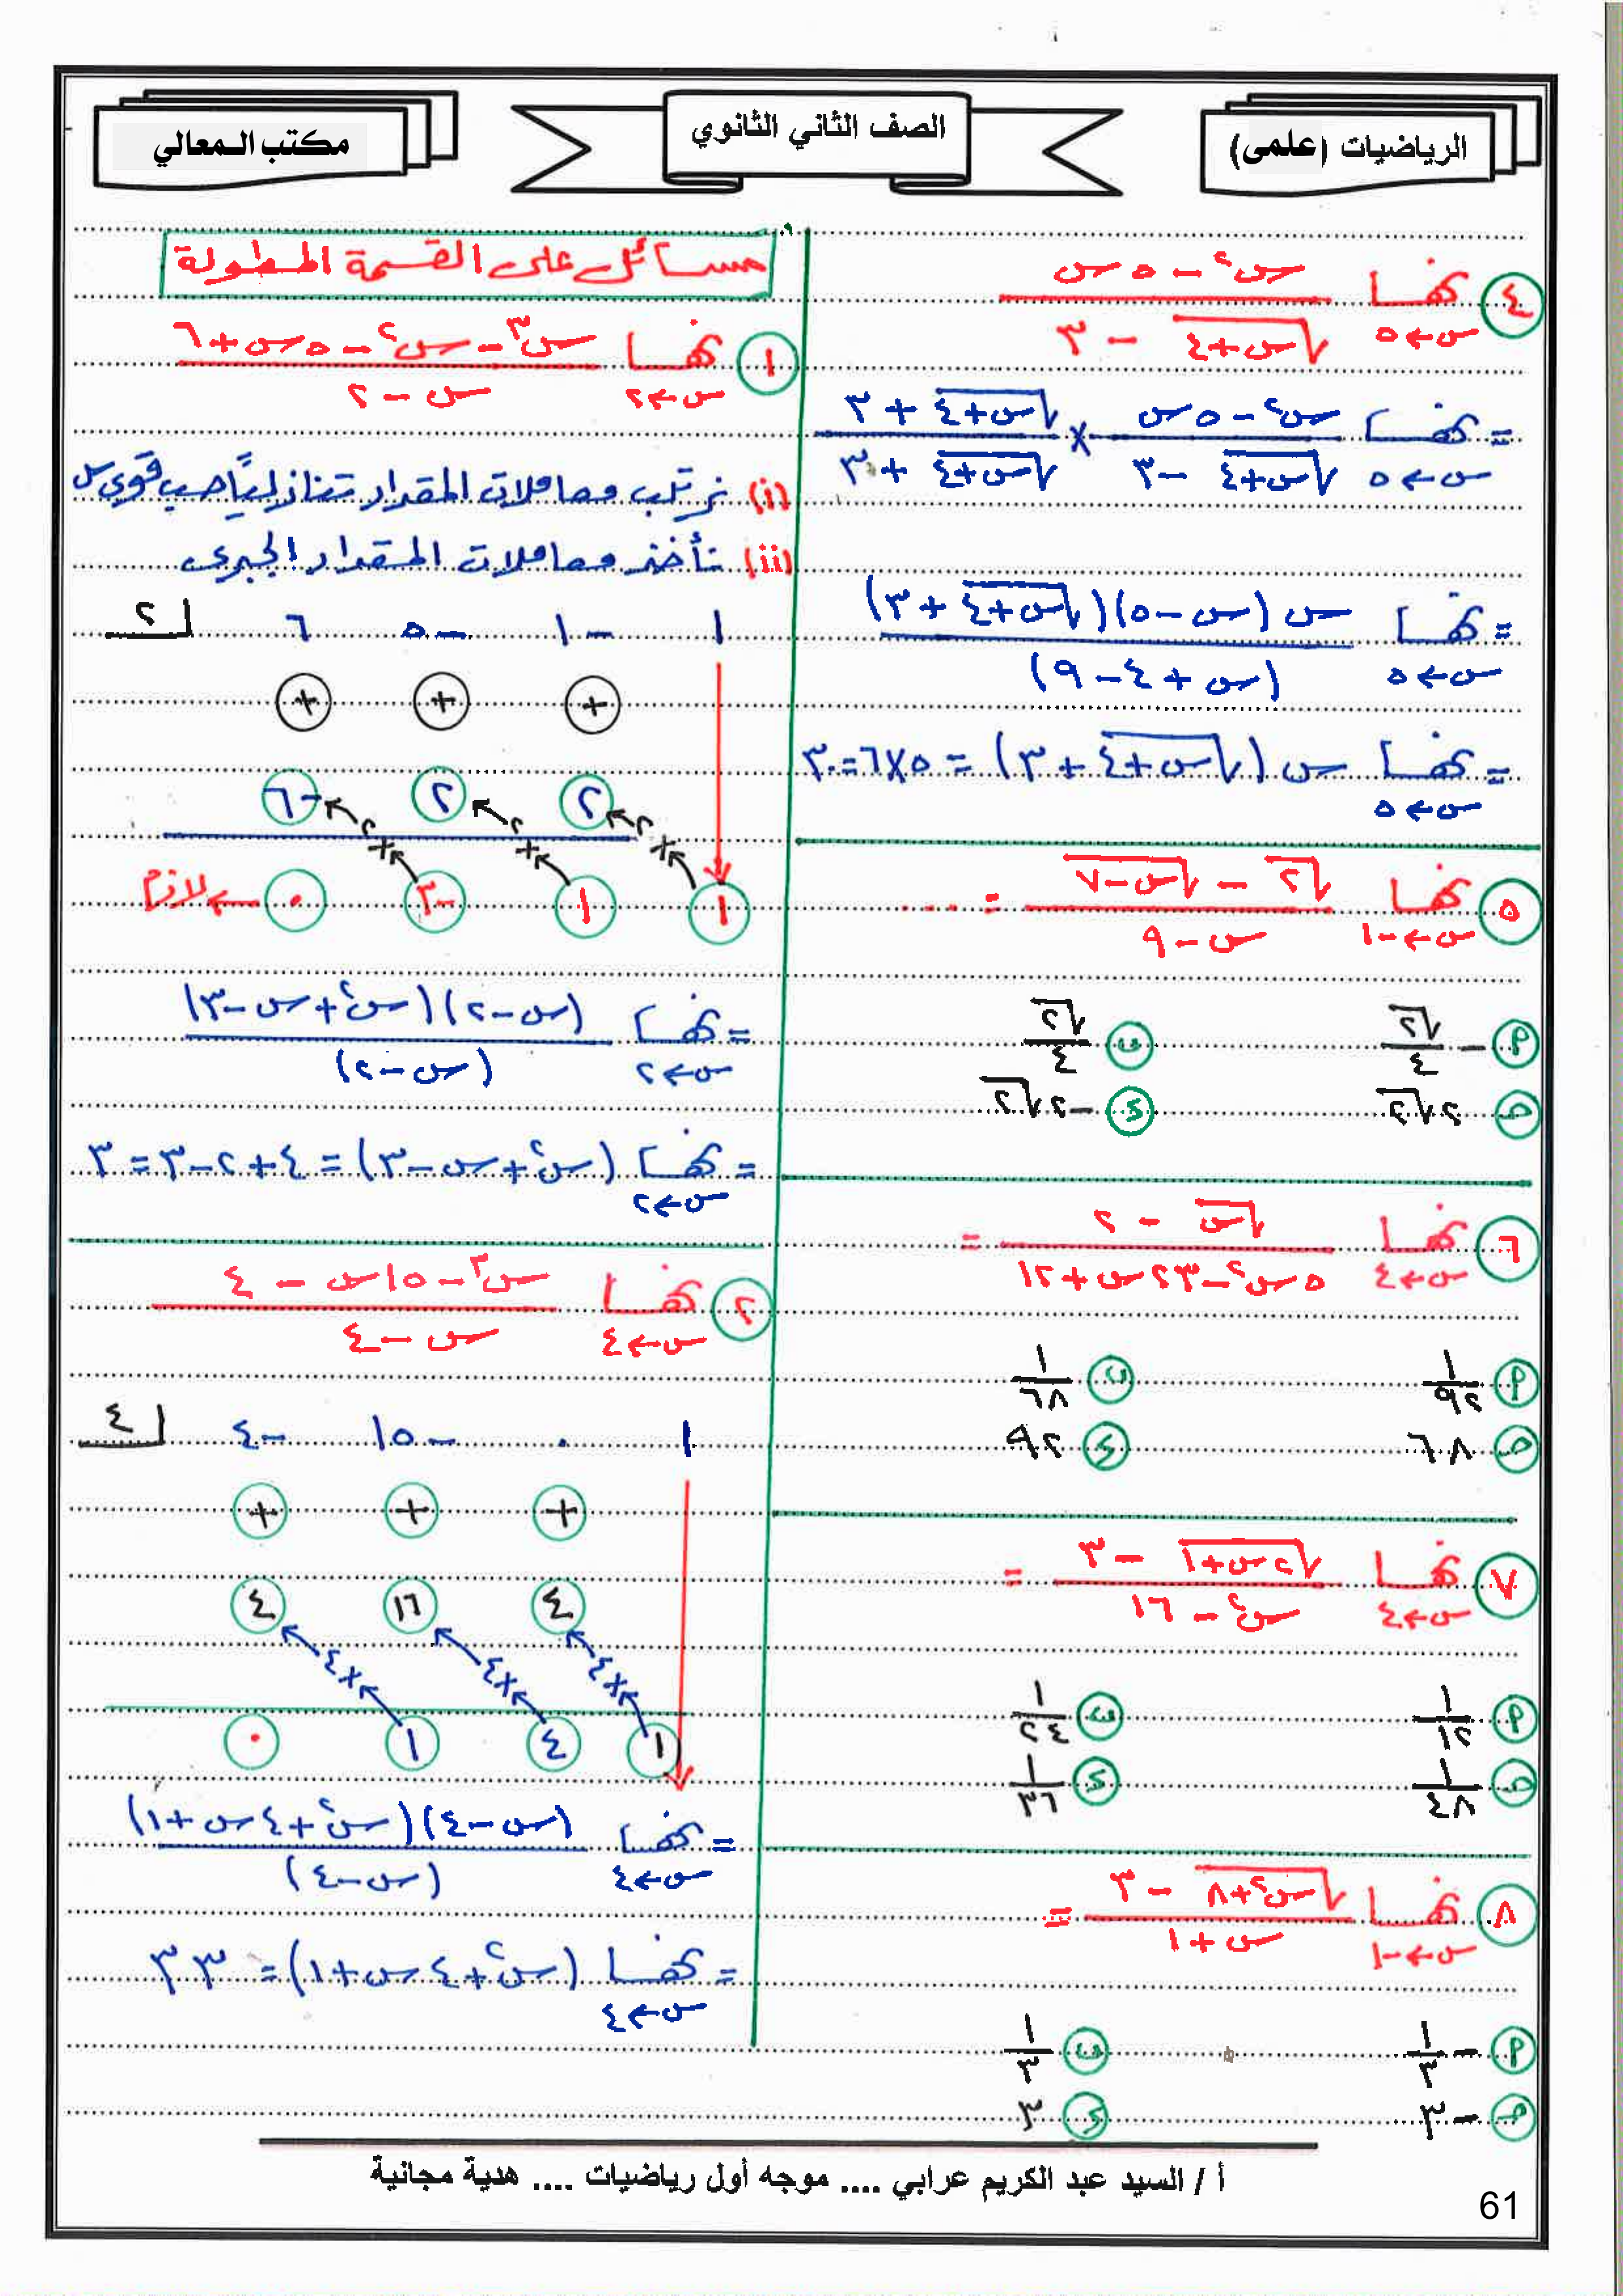 الرياضيات (علمى)
الصف الثاني الثانوي
مكتب المعالي
٤ نهــا س←٥ (س٢ - ٥س) / (√(س+٤) - ٣)
= نهــا س←٥ (س٢ - ٥س) / (√(س+٤) - ٣) × (√(س+٤) + ٣) / (√(س+٤) + ٣)
= نهــا س←٥ س (س - ٥)(√(س+٤) + ٣) / (س + ٤ - ٩)
= نهــا س←٥ س (√(س+٤) + ٣) = ٥×٦ = ٣٠
٥ نهــا س←-١ (√٢ - √(س-٧)) / (س - ٩) = ...
أ - √٢/٤
ب √٢/٤
ج ٢√٢
د -٢√٢
٦ نهــا س←٤ (√س - ٢) / (٥س٢ - ٢٣س + ١٢) =
أ ١/٩٢
ب ١/٦٨
ج ٦٨
د ٩٢
٧ نهــا س←٤ (√(٢س+١) - ٣) / (س٢ - ١٦) =
أ ١/١٢
ب ١/٢٤
ج ١/٤٨
د ١/٣٦
٨ نهــا س←-١ (√(س٢+٨) - ٣) / (س + ١) =
أ - ١/٣
ب ١/٣
ج -٣
د ٣
مسائل على القسمة المطولة
١ نهــا س←٢ (س٣ - س٢ - ٥س + ٦) / (س - ٢)
(i) نرتب معاملات المقدار تنازلياً حسب قوى س
(ii) نأخذ معاملات المقدار الجبرى
١ -١ -٥ ٦ ٢
+ + +
٢ ٢ -٦
×٢ ×٢ ×٢
١ ١ -٣ ٠ ← لازم
= نهــا س←٢ (س-٢)(س٢+س-٣) / (س-٢)
= نهــا س←٢ (س٢+س-٣) = ٤+٢-٣ = ٣
٢ نهــا س←٤ (س٣ - ١٥س - ٤) / (س - ٤)
١ ٠ -١٥ -٤ ٤
+ + +
٤ ١٦ ٤
×٤ ×٤ ×٤
١ ٤ ١ ٠
= نهــا س←٤ (س-٤)(س٢+٤س+١) / (س-٤)
= نهــا س←٤ (س٢+٤س+١) = ٣٣
أ / السيد عبد الكريم عرابي .... موجه أول رياضيات .... هدية مجانية
61